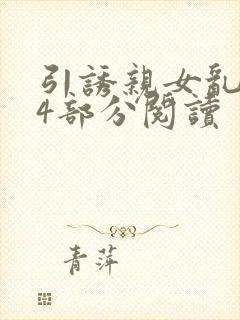 引誘親女亂
4部分閱讀
青萍